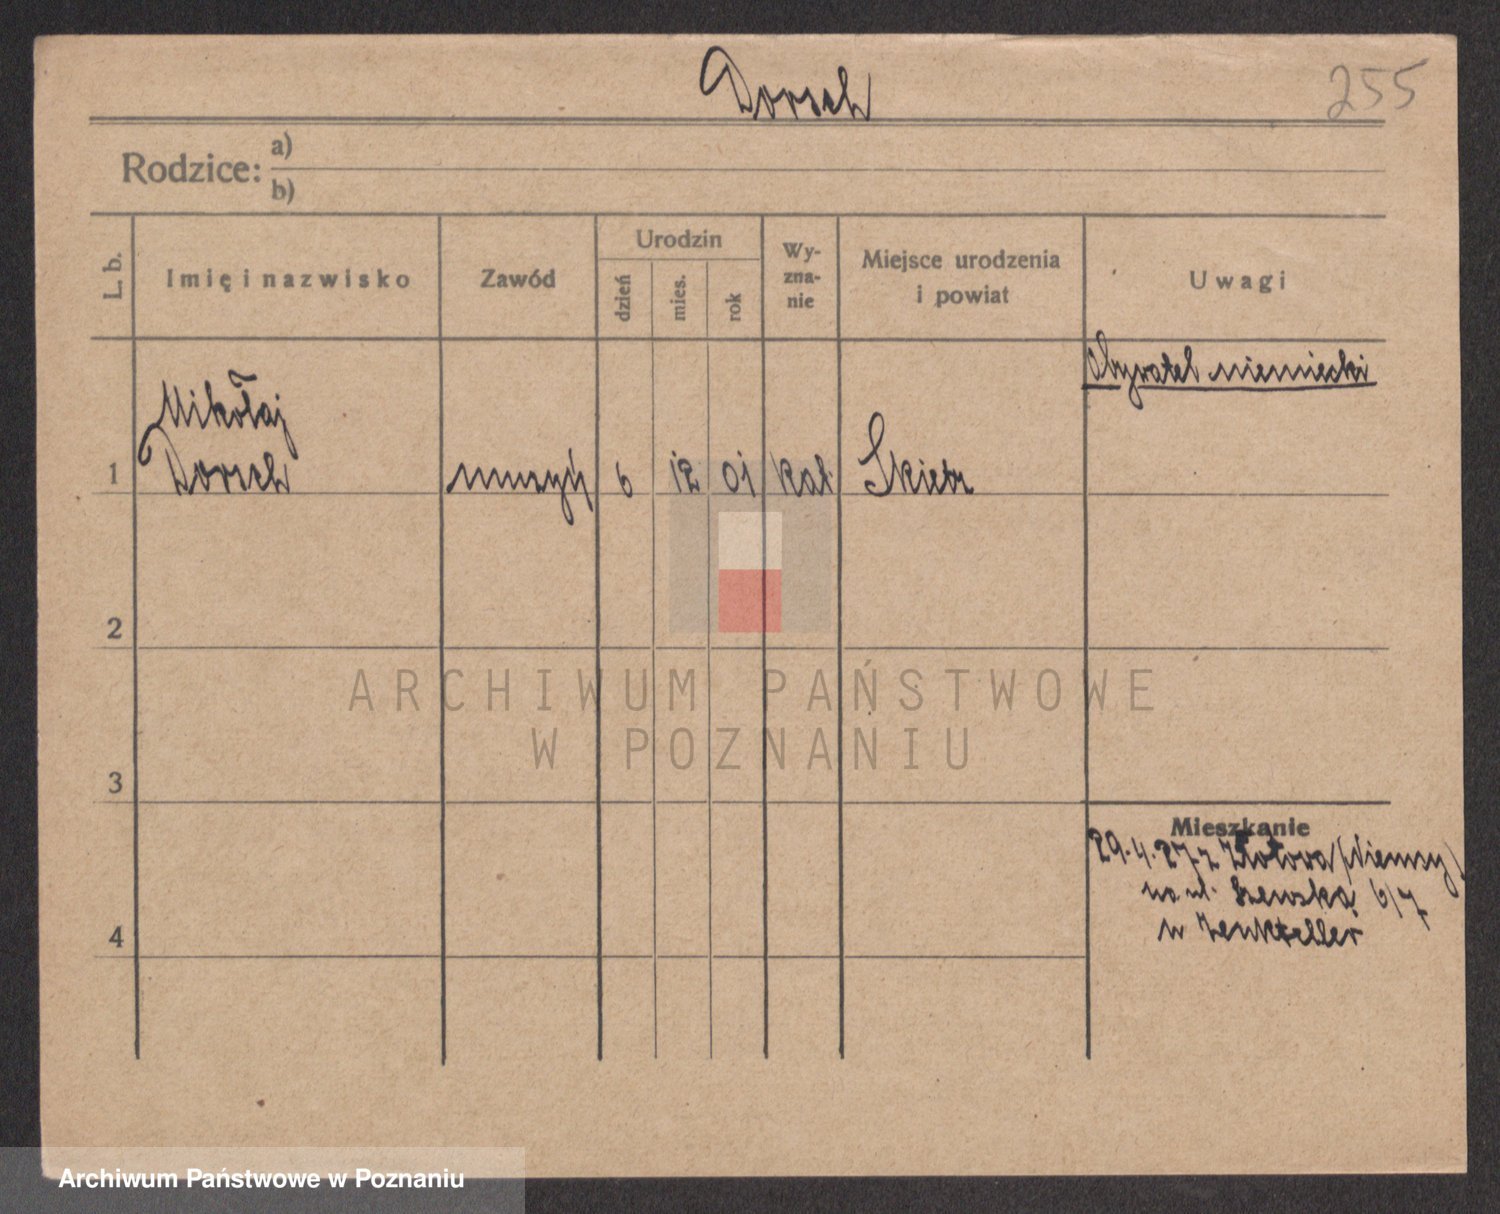 Dorsch
255
Rodzice:
a)
b)
L. b.
Imię i nazwisko
Zawód
Urodzin
dzień
mies.
rok
Wy-
zna-
nie
Miejsce urodzenia
i powiat
Uwagi
Obywatel niemiecki
Mikołaj
1 Dorsch 6 12 01 kat.
2
3
4
Mieszkanie
29.4.27 z Złotowa (Niemcy)
na ul. Szewską 6/7
u Zenkteller
ARCHIWUM PAŃSTWOWE
W POZNANIU
Archiwum Państwowe w Poznaniu